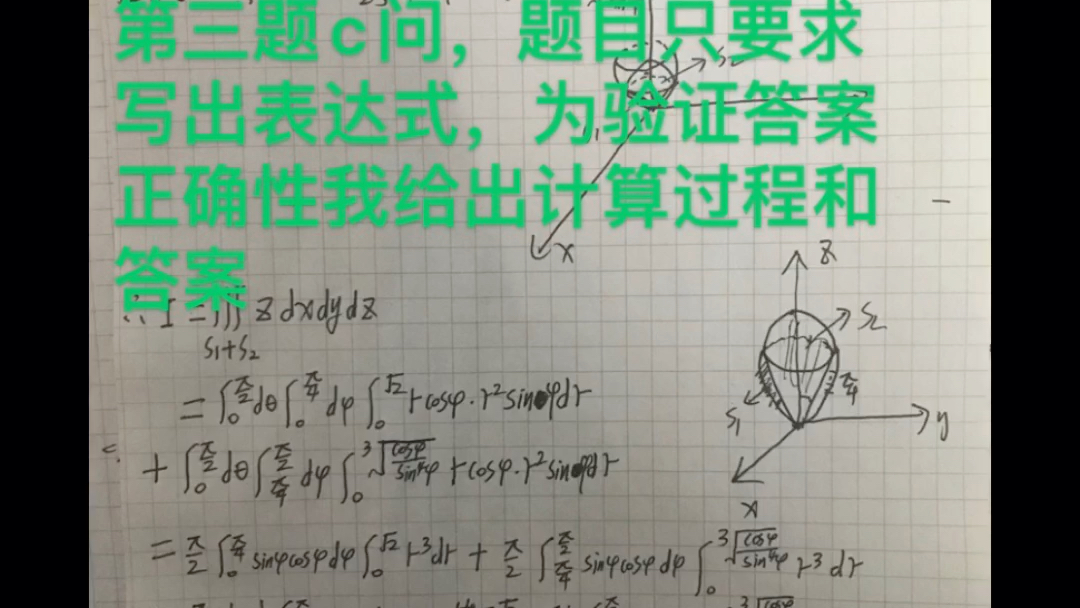 第三题c问，题目只要求
写出表达式，为验证答案
正确性我给出计算过程和
答案
S₂
x
∴ I = ∭ z dxdydz
S₁+S₂
= ∫₀^{π/2} dθ ∫₀^{π/4} dφ ∫₀^{√2} r cosφ · r² sinφ dr
+ ∫₀^{π/2} dθ ∫_{π/4}^{π/2} dφ ∫₀^{∛(cosφ/sin⁴φ)} r cosφ · r² sinφ dr
= π/2 ∫₀^{π/4} sinφ cosφ dφ ∫₀^{√2} r³ dr + π/2 ∫_{π/4}^{π/2} sinφ cosφ dφ ∫₀^{∛(cosφ/sin⁴φ)} r³ dr
z
S₂
S₁
π/4
y
x